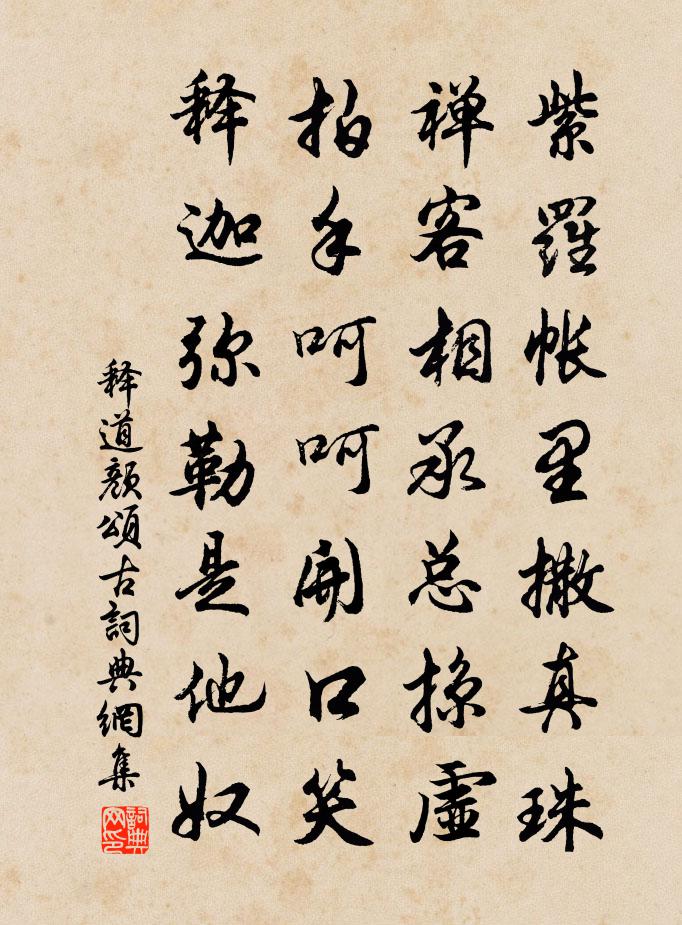 紫羅帐里撒真珠
禅客相承总掠虛
拍手呵呵開口笑
释迦弥勒是他奴
释道颜頌古詞典網集
詞典网印